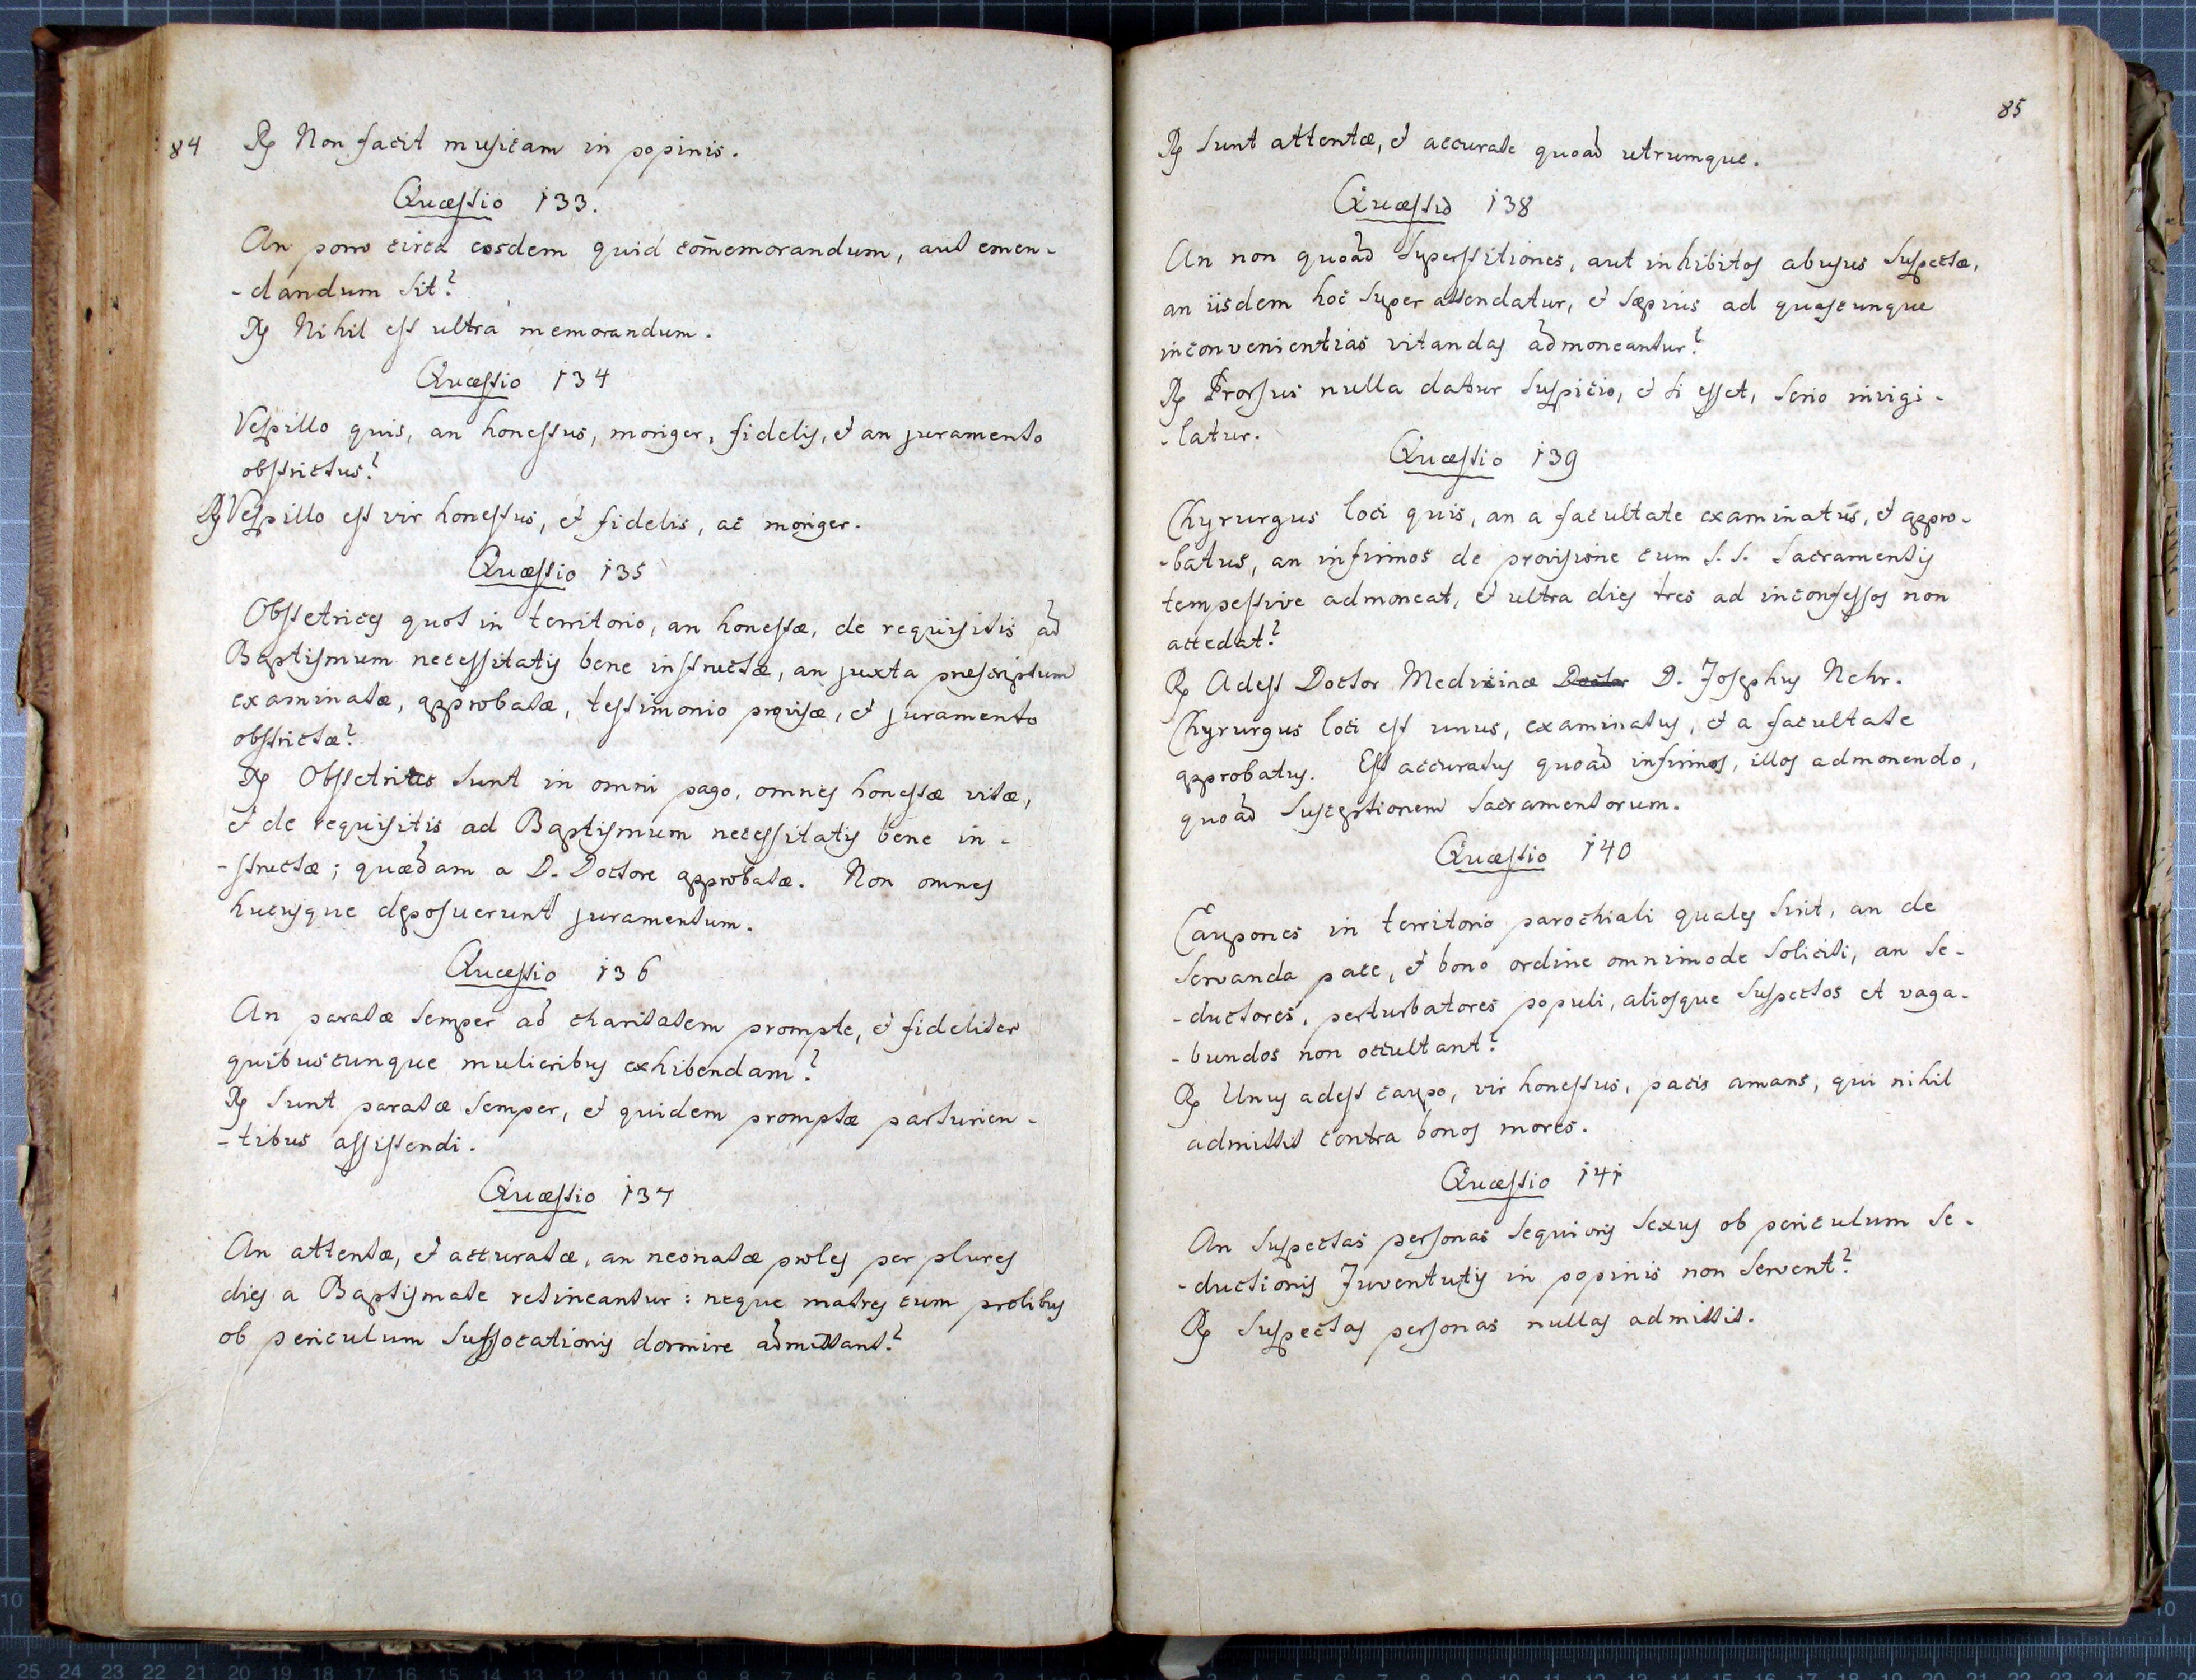 84
℟ Non facit musicam in popinis.
Quæstio 133.
An porro circa eosdem quid com̄emorandum, aut emen-
-dandum sit?
℟ Nihil est ultra memorandum.
Quæstio 134
Vespillo quis, an honestus, moriger, fidelis, et an juramento
obstrictus?
℟ Vespillo est vir honestus, et fidelis, ac moriger.
Quæstio 135
Obstetrices quot in territorio, an honestæ, de requisitis ad
Baptismum necessitatis bene instructæ, an juxta præscriptum
examinatæ, approbatæ, testimonio provisæ, et juramento
obstrictæ?
℟ Obstetrices sunt in omni pago, omnes honestæ vitæ,
et de requisitis ad Baptismum necessitatis bene in-
-structæ; quædam a D. Doctore approbatæ. Non omnes
hucusque deposuerunt juramentum.
Quæstio 136
An paratæ semper ad charitatem prompte, et fideliter
quibuscunque mulieribus exhibendam?
℟ Sunt paratæ semper, et quidem promptæ parturien-
-tibus assistendi.
Quæstio 137
An attentæ, et accuratæ, an neonatæ proles per plures
dies a Baptismate retineantur: neque matres cum prolibus
ob periculum suffocationis dormire admittant?
85
℟ Sunt attentæ, et accurate quoad utrumque.
Quæstio 138
An non quoad superstitiones, aut inhibitos abusus suspectæ,
an iisdem hoc super attendatur, et sæpius ad quascunque
inconvenientias vitandas admoneantur?
℟ Prorsus nulla datur suspicio, et si esset, serio invigi-
-latur.
Quæstio 139
Chyrurgus loci quis, an a facultate examinatus, et appro-
-batus, an infirmos de provisione cum S. S. Sacramentis
tempestive admoneat, et ultra dies tres ad inconfessos non
accedat?
℟ Adest Doctor Medicinæ Doctor D. Josephus Nehr.
Chyrurgus loci est unus, examinatus, et a facultate
approbatus. Est accuratus quoad infirmos, illos admonendo,
quoad susceptionem Sacramentorum.
Quæstio 140
Caupones in territorio parochiali quales sint, an de
servanda pace, et bono ordine omnimode soliciti, an se-
-ductores, perturbatores populi, aliosque suspectos et vaga-
-bundos non occultant?
℟ Unus adest caupo, vir honestus, pacis amans, qui nihil
admittit contra bonos mores.
Quæstio 141
An suspectas personas sequioris sexus ob periculum se-
-ductionis Juventutis in popinis non servent?
℟ Suspectas personas nullas admittit.